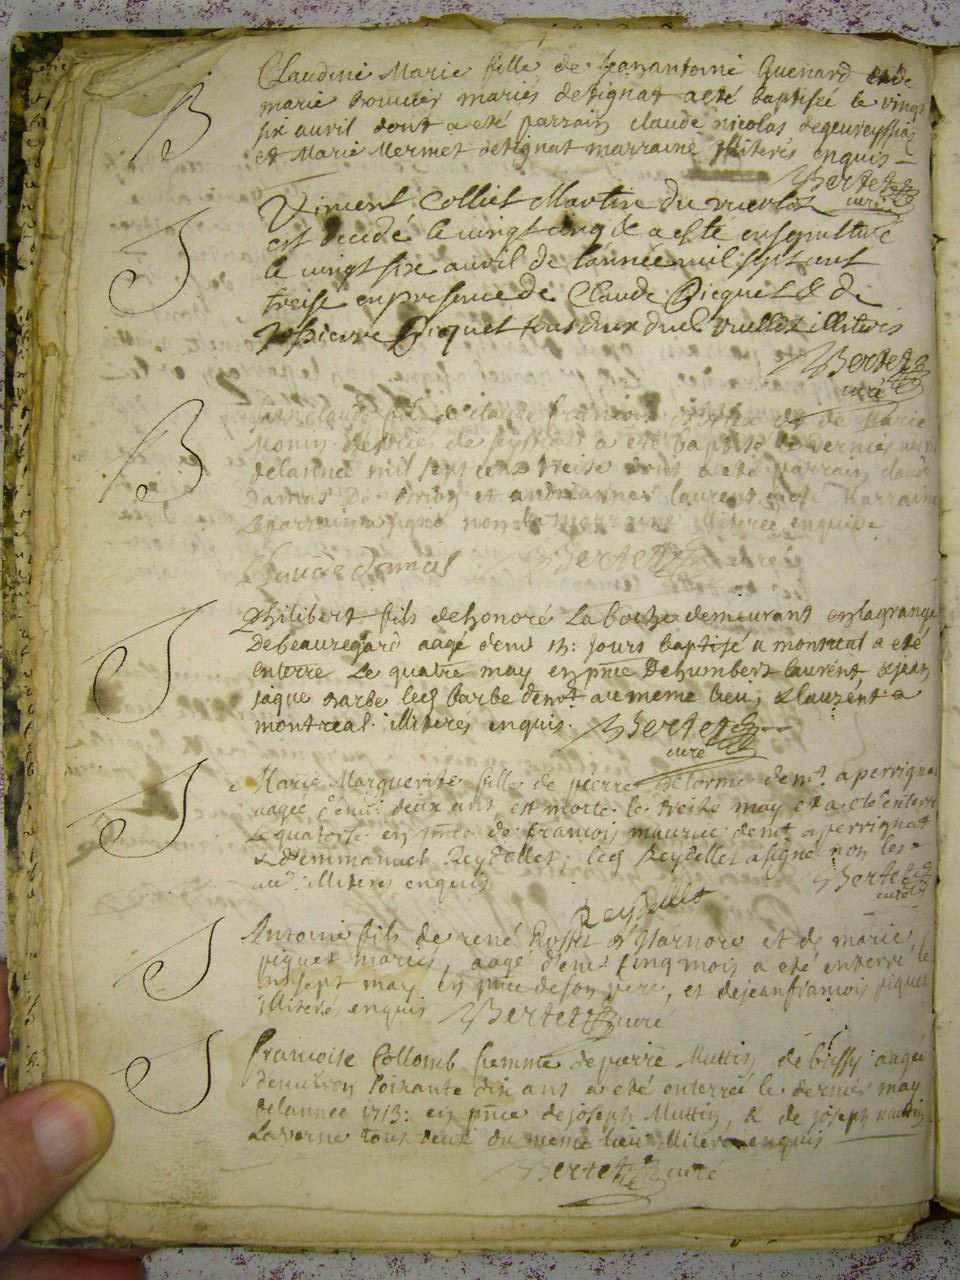 B
Claudine Marie fille de Jeanantoine Guenard et de
marie mariés de tignat a eté baptisée le vingt
six auril dont a eté parrain claude nicolas
et Marie Mermet de tignat marraine illiterés enquis
Bertet
curé
S
Vincent Colliet Martin du
est decedé le vingt cinq & a esté ensepulturé
le vingt six auril de lannée mil sept cent
treise en presence de Claude Bicquet & de
pierre Bicquet tous deux dud illiterés
Bertet
curé
B
claude fils de claude francois et de Marie
Monin de a eté baptisé le dernier auril
delannée mil sept cens treise dont a eté parrain claude
et andrianne laurent Marraine
le parrain a signé non la marraine illiterée enquise
Claude
Bertet
S
Philibert fils de honoré Laboche demeurant en la grange
De beauregard aagé denu 15: jours baptisé a montreal a eté
enterré Le quatre may en pnce De humbert laurent & jean
jaque barbe led barbe demt au meme lieu, & laurent a
montreal. illiteres enquis. Bertet
curé
S
Marie Marguerite fille de pierre Delorme demt a perrignat
aagée denui. deux ans est morte le treise may et a eté enterrée
Le quatorse en pnce de francois maurice demt a perrignat
& d'emmanuel Reydellet, led Reydellet a signé non les
illiteres enquis
Bertet
curé
Reydellet
S
Antoine fils de rené Rosset d'Isarnore et de marie
piquet mariés, aagé denu cinq mois a eté enterré le
vint sept may en pnce de son pere, et de jean francois piquet
illiterés enquis Bertet curé
S
francoise Collomb femme de pierre Muttin de aagée
d'enuiron soixante dix ans a eté enterrée le dernier may
delannée 1713: en pnce de joseph Muttin, & de joseph muttin
Lauerne tous deux du meme lieu illiteres enquis
Bertet curé